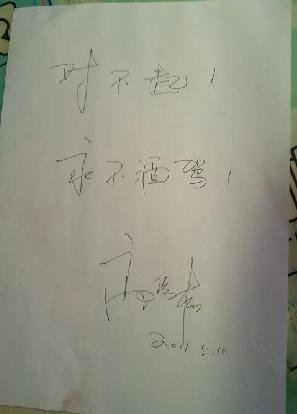 对不起!
永不酒驾!
高晓松
2011.5.10